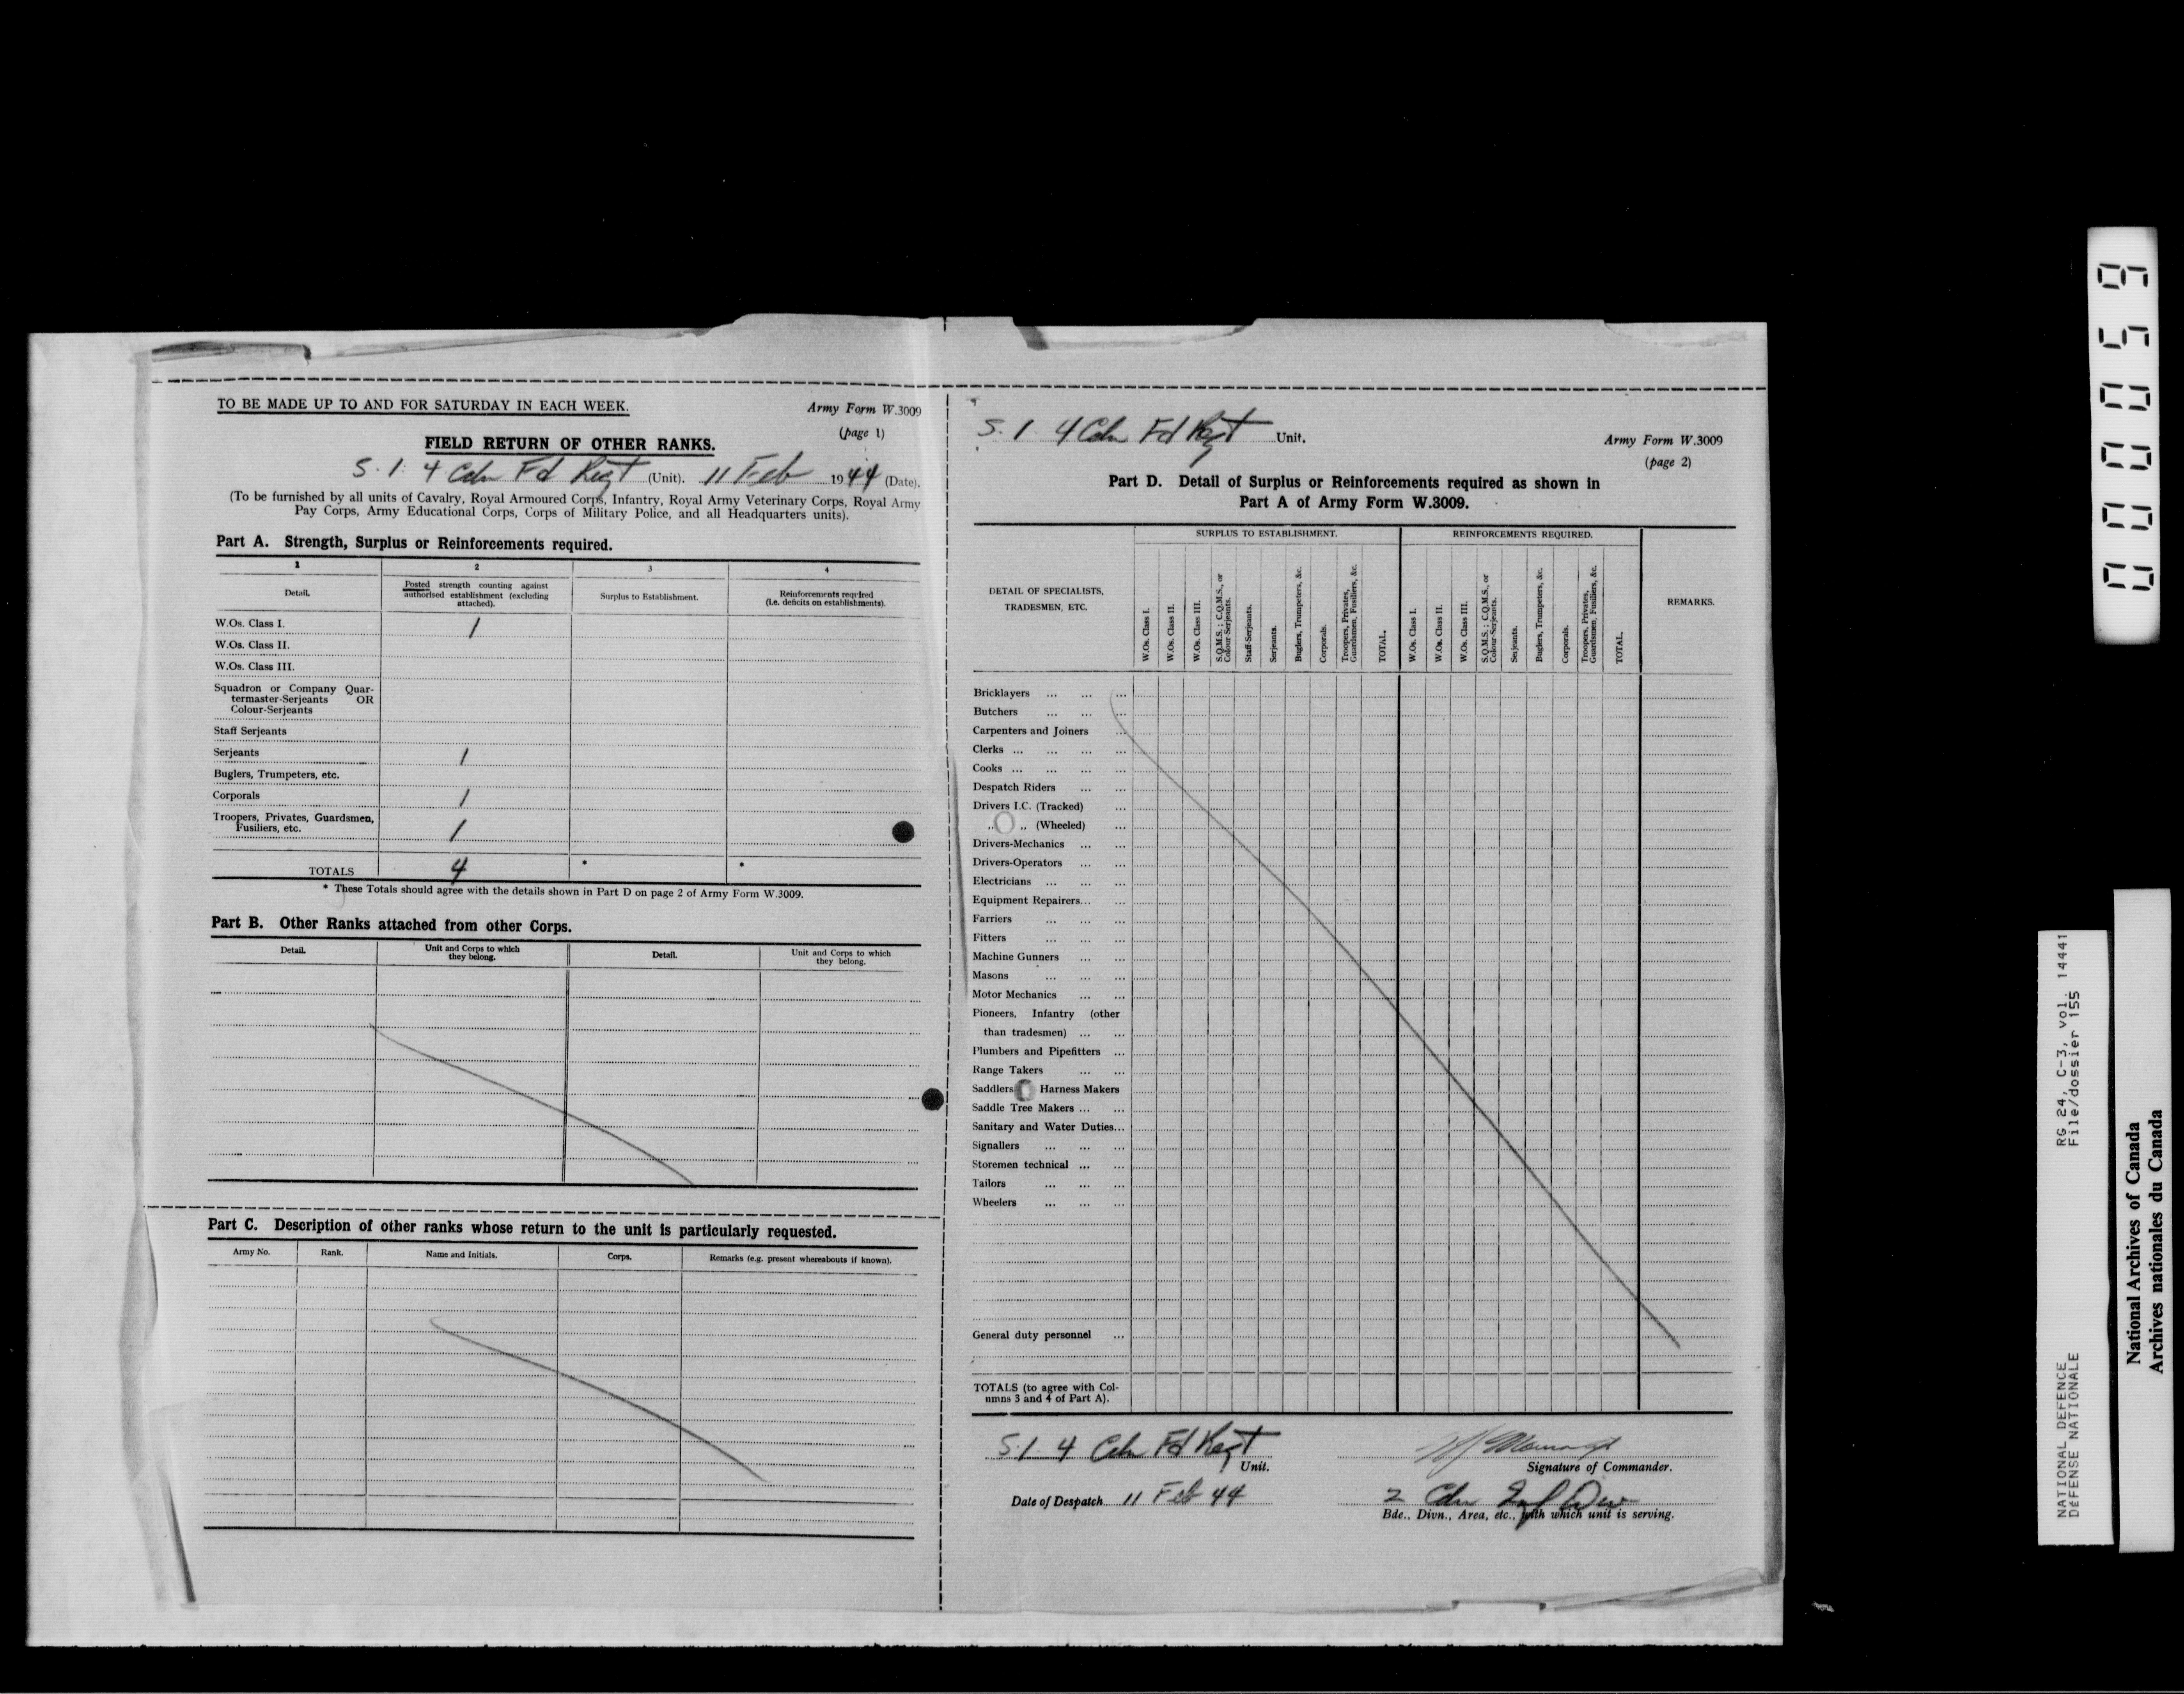 TO BE MADE UP TO AND FOR SATURDAY IN EACH WEEK.
Army Form W.3009
(page 1)
FIELD RETURN OF OTHER RANKS.
S.1. 4 Cdn Fd Regt (Unit). 11 Feb 1944 (Date).
(To be furnished by all units of Cavalry, Royal Armoured Corps, Infantry, Royal Army Veterinary Corps, Royal Army
Pay Corps, Army Educational Corps, Corps of Military Police, and all Headquarters units).
Part A. Strength, Surplus or Reinforcements required.
1 2 3 4
Detail.
Posted strength counting against
authorised establishment (excluding
attached).
Surplus to Establishment.
Reinforcements required
(i.e. deficits on establishments).
W.Os. Class I. 1
W.Os. Class II.
W.Os. Class III.
Squadron or Company Quar-
termaster-Serjeants OR
Colour-Serjeants
Staff Serjeants
Serjeants 1
Buglers, Trumpeters, etc.
Corporals 1
Troopers, Privates, Guardsmen,
Fusiliers, etc. 1
TOTALS 4 * *
* These Totals should agree with the details shown in Part D on page 2 of Army Form W.3009.
Part B. Other Ranks attached from other Corps.
Detail.
Unit and Corps to which
they belong.
Detail.
Unit and Corps to which
they belong.
Part C. Description of other ranks whose return to the unit is particularly requested.
Army No. Rank. Name and Initials. Corps. Remarks (e.g. present whereabouts if known).
S.1. 4 Cdn Fd Regt Unit.
Army Form W.3009
(page 2)
Part D. Detail of Surplus or Reinforcements required as shown in
Part A of Army Form W.3009.
DETAIL OF SPECIALISTS,
TRADESMEN, ETC.
SURPLUS TO ESTABLISHMENT.
W.Os. Class I.
W.Os. Class II.
W.Os. Class III.
S.Q.M.S.; C.Q.M.S., or
Colour-Serjeants.
Staff-Serjeants.
Serjeants.
Buglers, Trumpeters, &c.
Corporals.
Troopers, Privates,
Guardsmen, Fusiliers, &c.
TOTAL.
REINFORCEMENTS REQUIRED.
W.Os. Class I.
W.Os. Class II.
W.Os. Class III.
S.Q.M.S.; C.Q.M.S. or
Colour-Serjeants.
Serjeants.
Buglers, Trumpeters, &c.
Corporals.
Troopers, Privates,
Guardsmen, Fusiliers, &c.
TOTAL.
REMARKS.
Bricklayers ... ... ...
Butchers ... ... ...
Carpenters and Joiners ...
Clerks ... ... ... ...
Cooks ... ... ... ...
Despatch Riders ... ...
Drivers I.C. (Tracked) ...
„ „ (Wheeled) ...
Drivers-Mechanics ... ...
Drivers-Operators ... ...
Electricians ... ... ...
Equipment Repairers... ...
Farriers ... ... ...
Fitters ... ... ...
Machine Gunners ... ...
Masons ... ... ...
Motor Mechanics ... ...
Pioneers, Infantry (other
than tradesmen) ... ...
Plumbers and Pipefitters ...
Range Takers ... ...
Saddlers Harness Makers
Saddle Tree Makers ... ...
Sanitary and Water Duties...
Signallers ... ... ...
Storemen technical ... ...
Tailors ... ... ...
Wheelers ... ... ...
General duty personnel ...
TOTALS (to agree with Col-
umns 3 and 4 of Part A).
S.1. 4 Cdn Fd Regt
Unit.
Signature of Commander.
Date of Despatch 11 Feb 44
2 Cdn Inf Div
Bde., Divn., Area, etc., with which unit is serving.
000059
NATIONAL DEFENCE RG 24, C-3, vol. 14441
DÉFENSE NATIONALE File/dossier 155
National Archives of Canada
Archives nationales du Canada